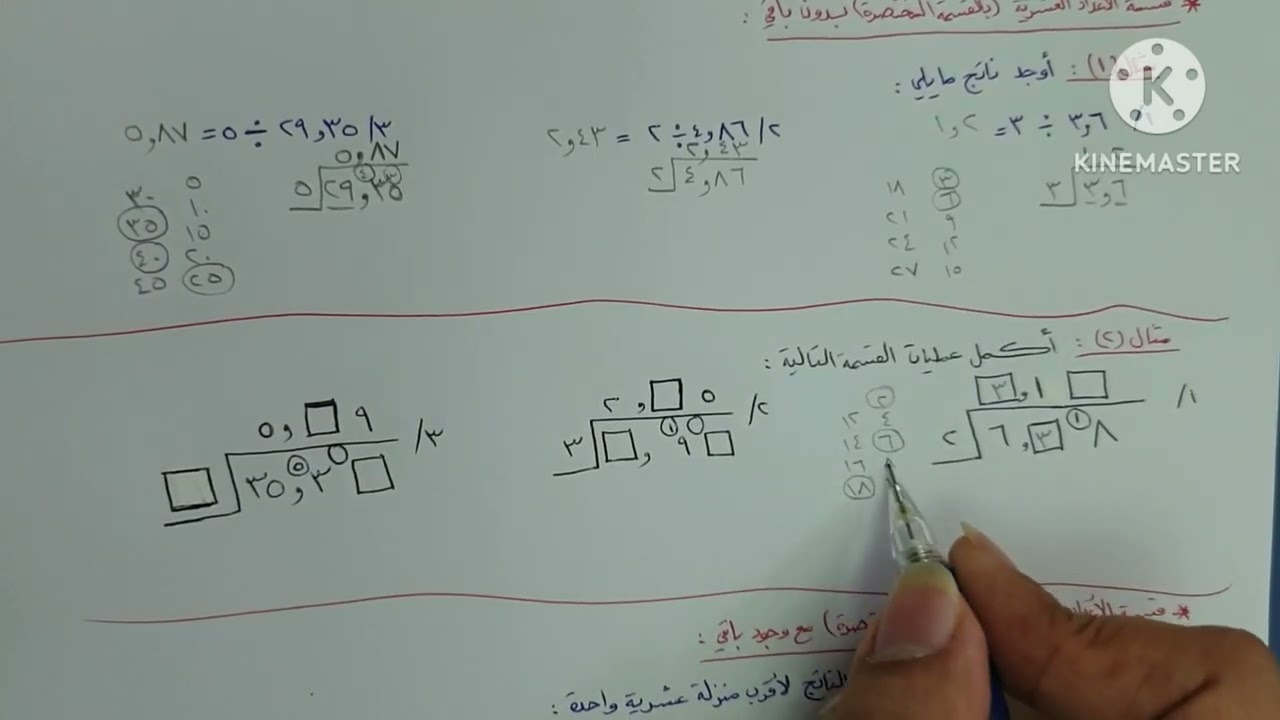 * قسمة الأعداد العشرية (بالقسمة المختصرة) بدون باقي :
مثال (١) : أوجد ناتج مايلي :
٣,٦ ÷ ٣ = ١,٢
٣ ٣,٦
٣ ١٨
٦ ٢١
٩ ٢٤
١٢ ٢٧
١٥
٢/ ٤,٨٦ ÷ ٢ = ٢,٤٣
٢,٤٣
٢ ٤,٨٦
٣/ ٢٩,٣٥ ÷ ٥ = ٥,٨٧
٥,٨٧
٥ ٢٩,٤٣٣٥
٥ ٣٠
١٠ ٣٥
١٥ ٤٠
٢٠ ٤٥
٢٥
KINEMASTER
مثال (٢) : أكمل عمليات القسمة التالية :
١/
٣,١
٢ ٦,٣١٨
٢ ١٢
٤ ١٤
٦ ١٦
١٨
٢/
٢, ٥
٣ , ١٩
٣/
٥, ٩
٣٥,٥٣
مع وجود باقي :
الناتج لأقرب منزلة عشرية واحدة :